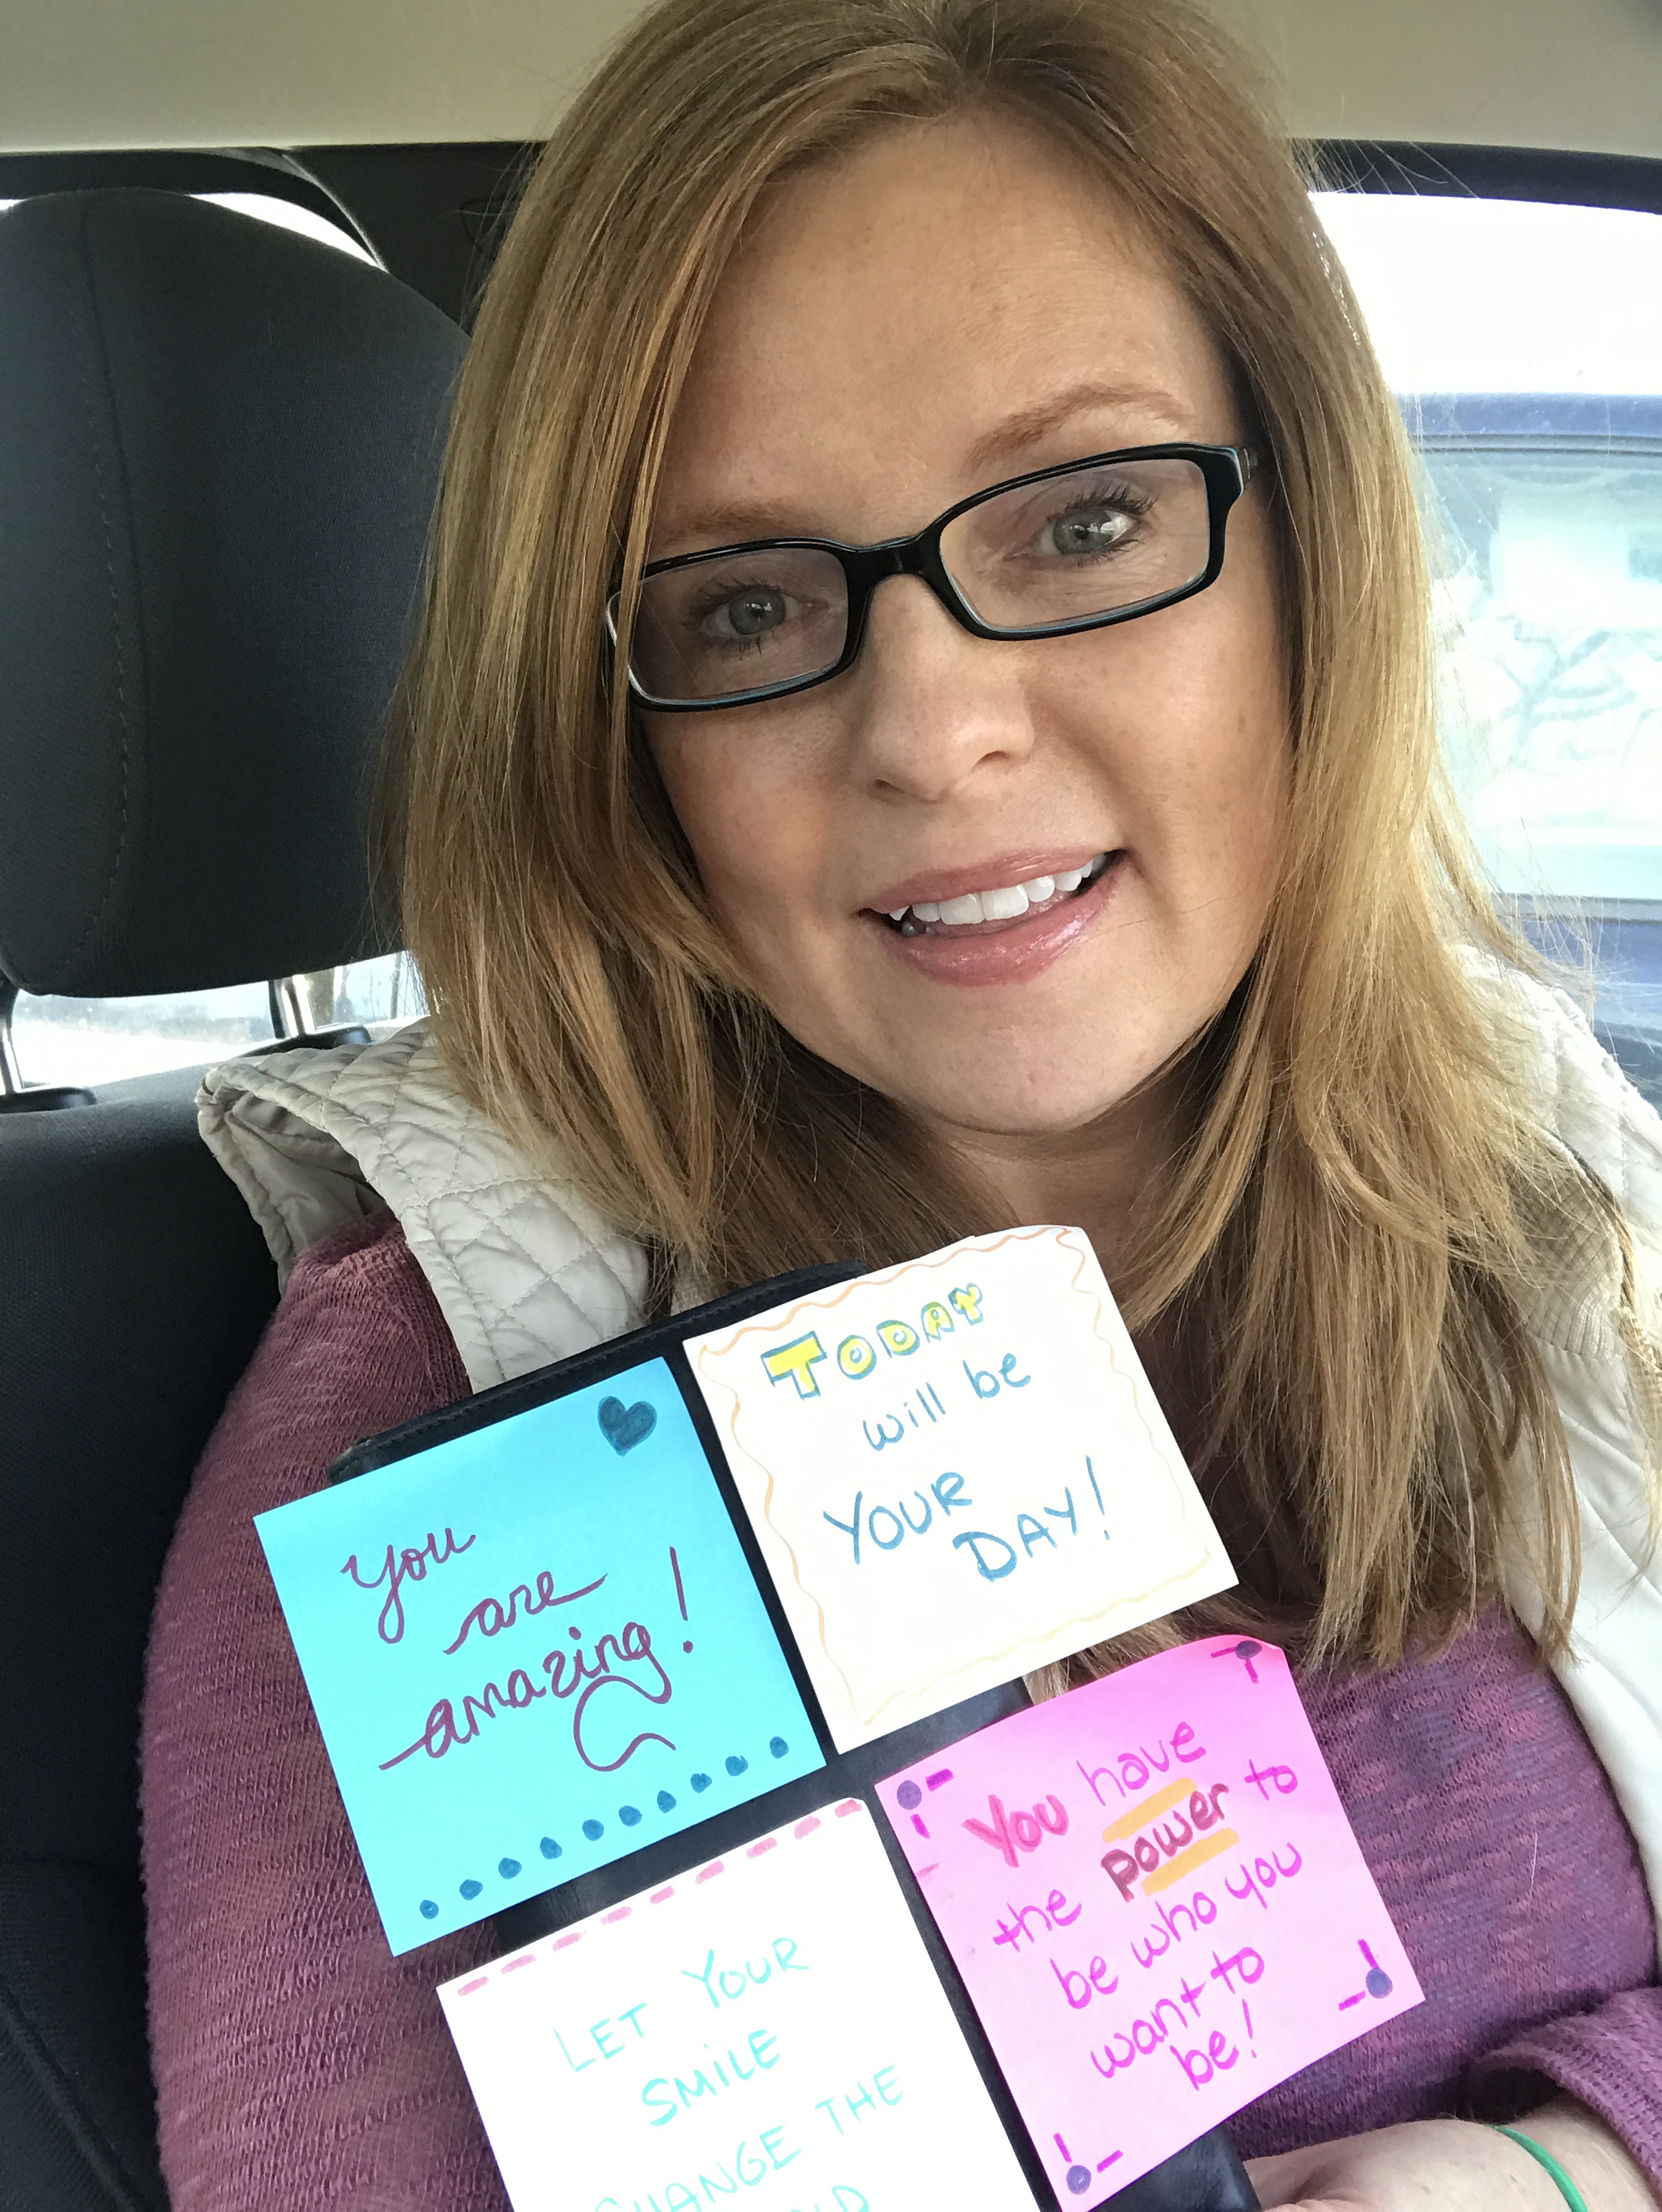 You
are
amazing!
TODAY
will be
YOUR
DAY!
LET YOUR
SMILE
CHANGE THE
You have
the power to
be who you
want to
be!